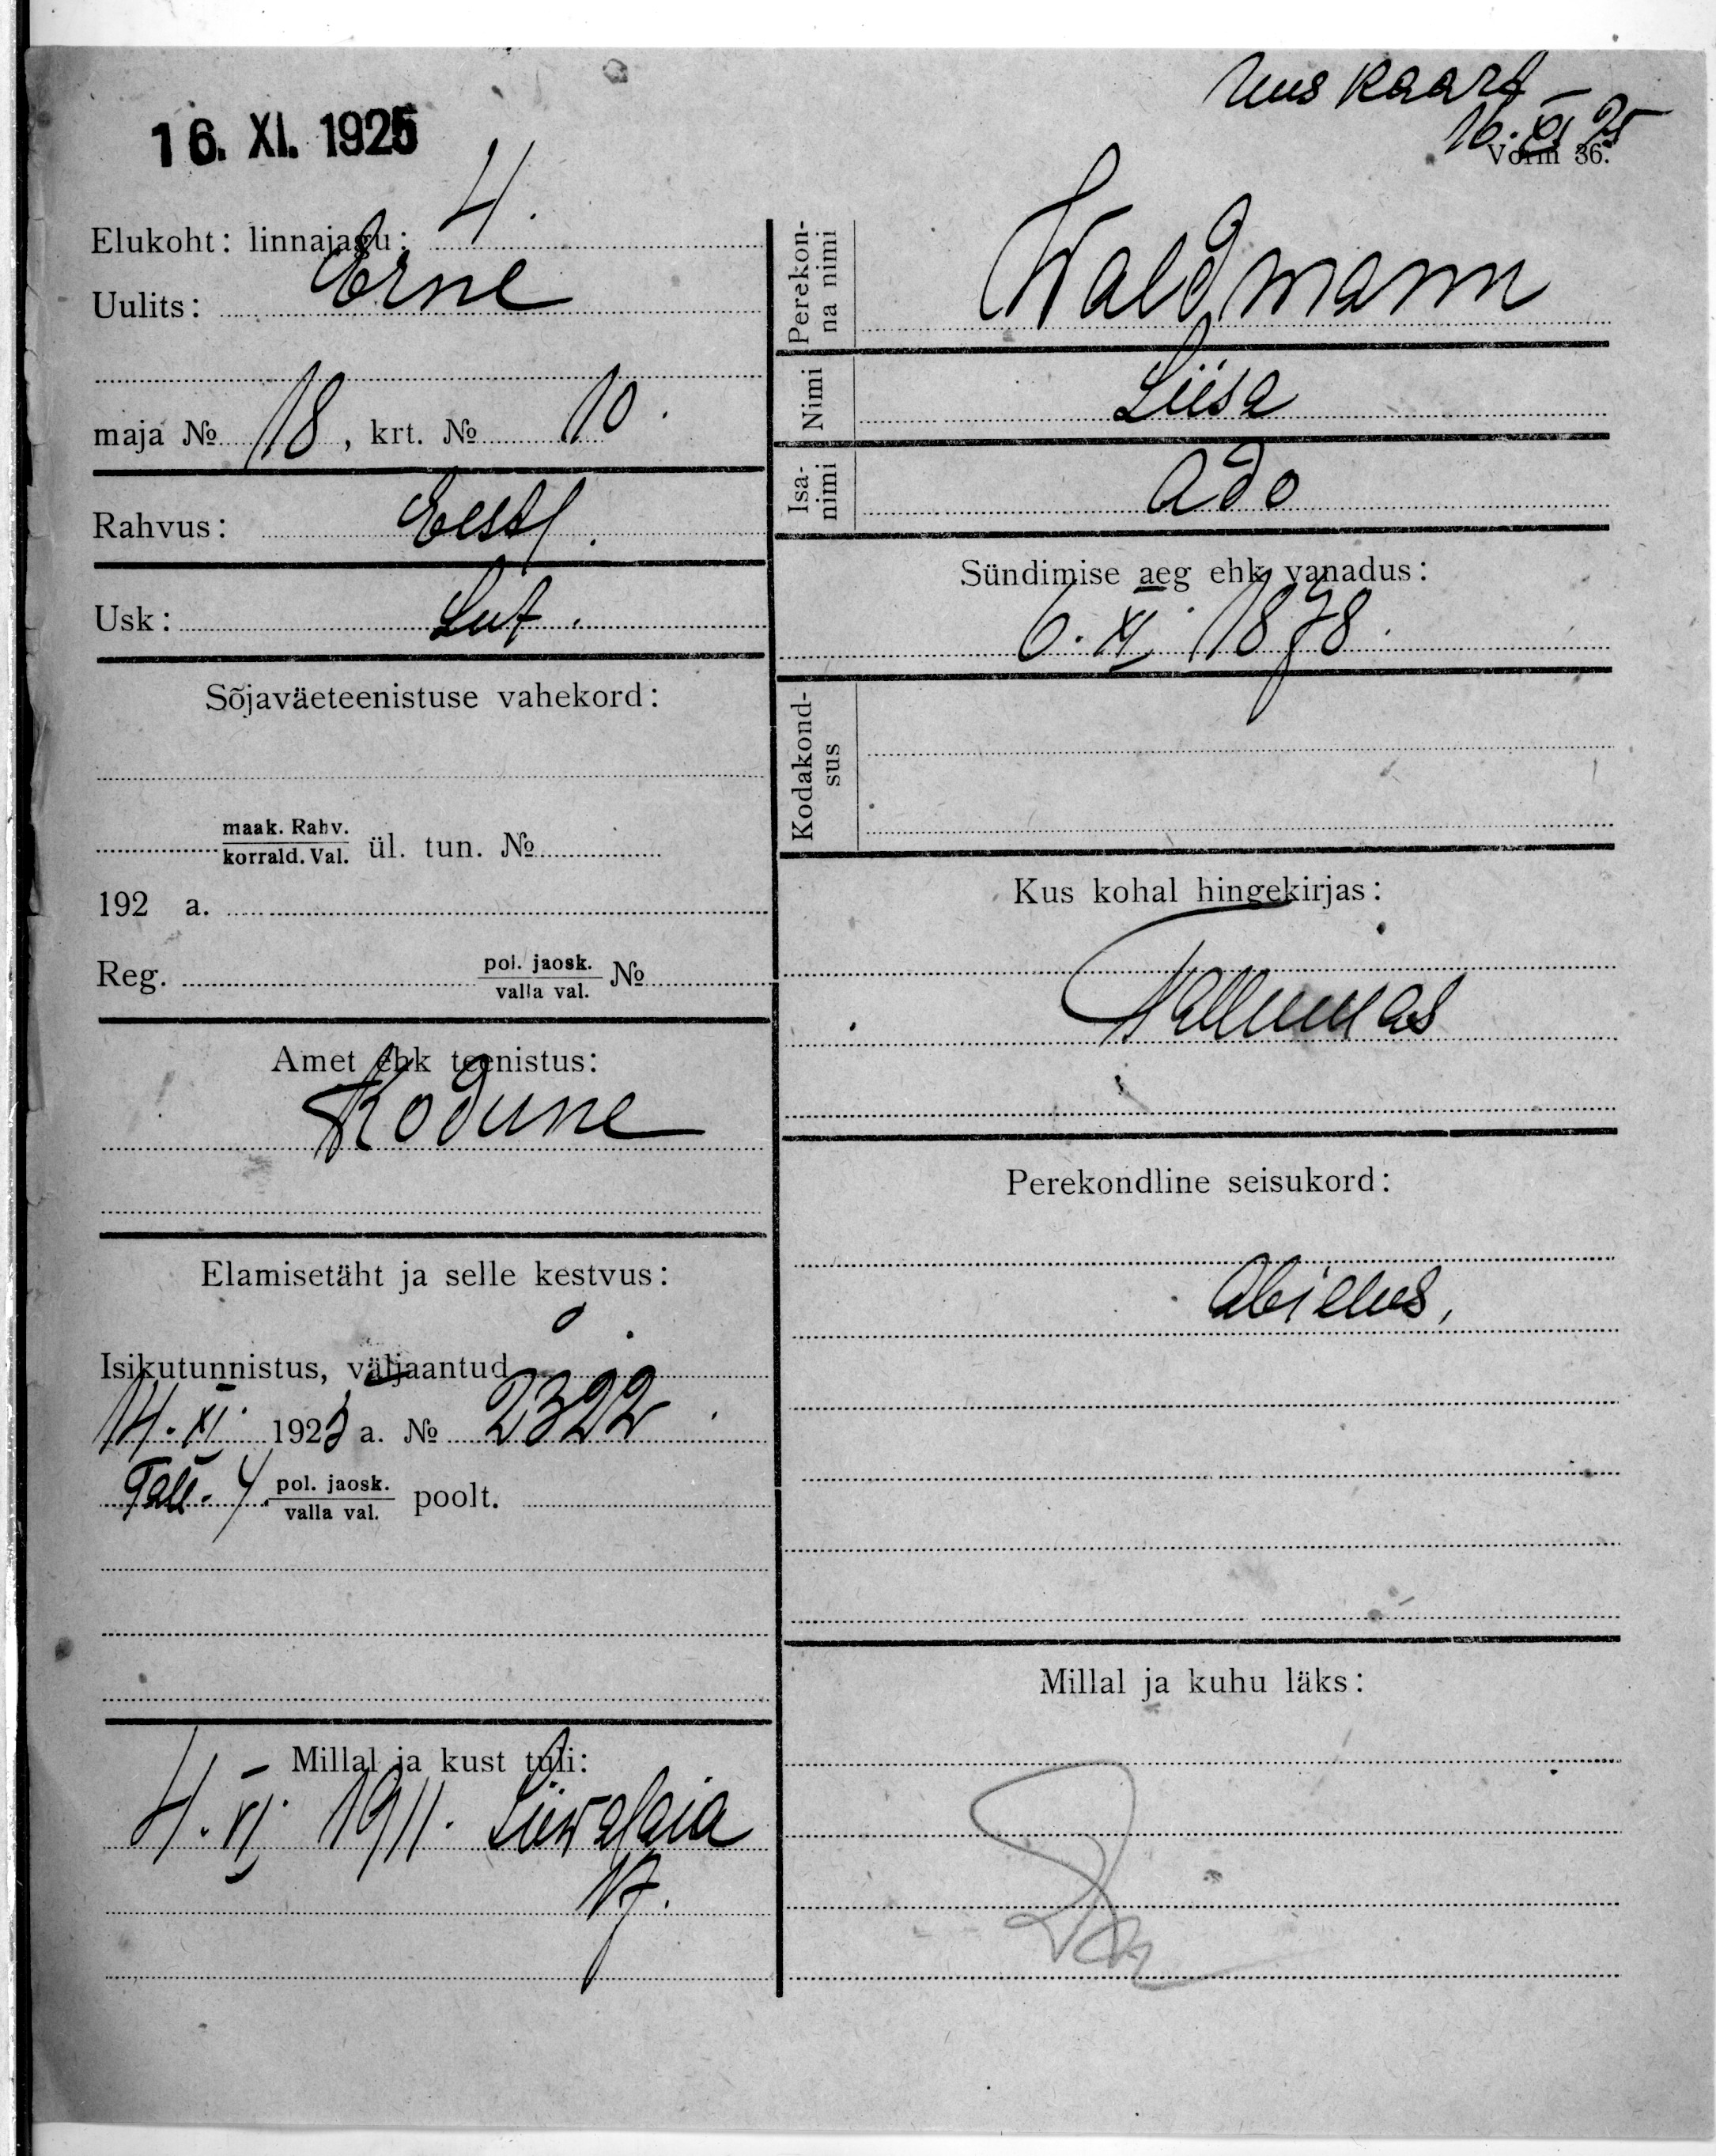 16. XI. 1925
Uus kaart
16. XI 25
Vorm 36.
Elukoht: linnajagu: 4.
Uulits: Erne
maja № 18, krt. № 10.
Rahvus: Eestl.
Usk: Lut.
Sõjaväeteenistuse vahekord:
maak. Rahv.
korrald. Val. ül. tun. №
192 a.
Reg. pol. jaosk.
valla val. №
Amet ehk teenistus:
Kodune
Elamisetäht ja selle kestvus:
Isikutunnistus, väljaantud
14. XI. 1925 a. № 2322.
Tall. 4. pol. jaosk.
valla val. poolt.
Millal ja kust tuli:
4. VI 1911. Liiwalaia
17.
Perekon-
na nimi
Waldmann
Nimi
Liisa
Isa-
nimi
Ado
Sündimise aeg ehk vanadus:
6. XI. 1878.
Kodakond-
sus
Kus kohal hingekirjas:
Tallinnas
Perekondline seisukord:
Abielus,
Millal ja kuhu läks: